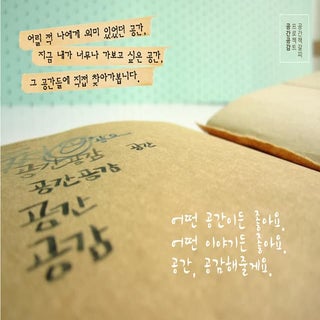 어릴 적 나에게 의미 있었던 공간,
지금 내가 너무나 가보고 싶은 공간,
그 공간들에 직접 찾아가봅니다.
공간책갈피
프로젝트
공간공감
공간
공간공감
공간공감
공간
공감
어떤 공간이든 좋아요.
어떤 이야기든 좋아요.
공간, 공감해줄게요.